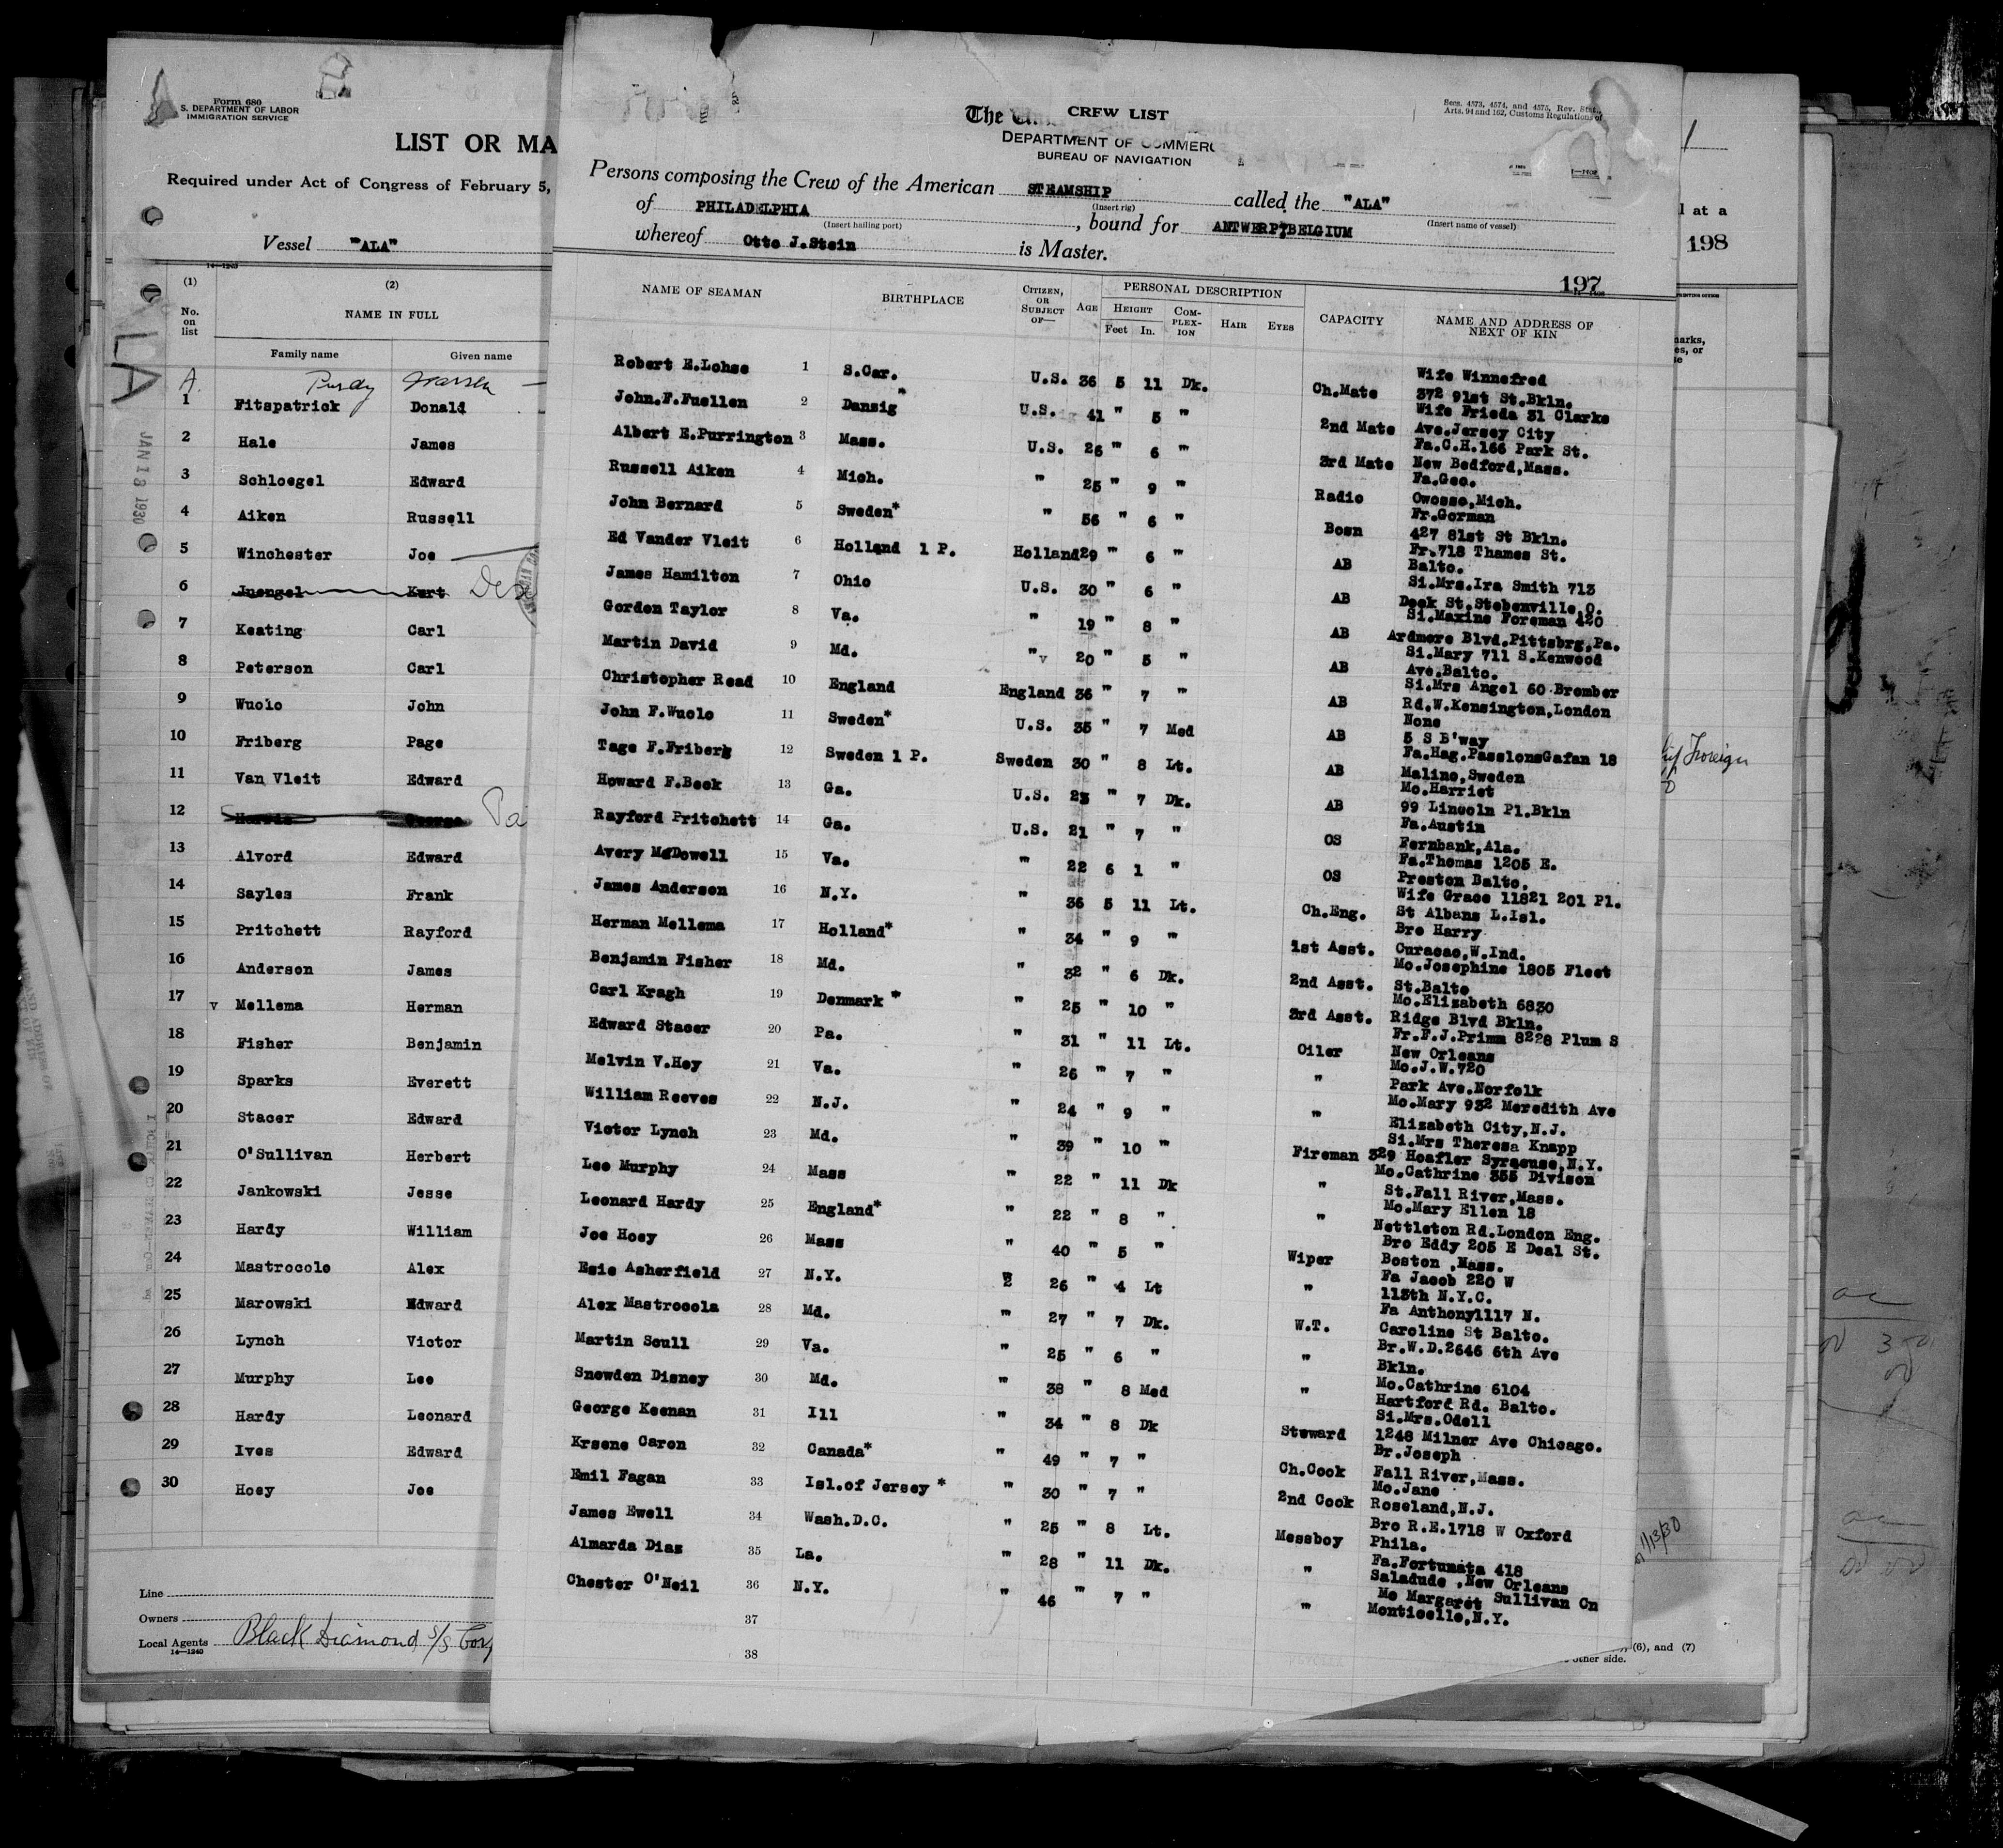 Form 680
S. DEPARTMENT OF LABOR
IMMIGRATION SERVICE
LIST OR MA
Required under Act of Congress of February 5,
Vessel "ALA"
14—1240
(1) (2)
No. on list NAME IN FULL
Family name Given name
A. Purdy Warren
1 Fitspatrick Donald
2 Hale James
3 Schloegel Edward
4 Aiken Russell
5 Winchester Joe
6 Juengel Kurt
7 Keating Carl
8 Peterson Carl
9 Wuolo John
10 Friberg Page
11 Van Vleit Edward
12
13 Alvord Edward
14 Sayles Frank
15 Pritchett Rayford
16 Anderson James
17 v Mellema Herman
18 Fisher Benjamin
19 Sparks Everett
20 Stacer Edward
21 O'Sullivan Herbert
22 Jankowski Jesse
23 Hardy William
24 Mastrocole Alex
25 Marowski Edward
26 Lynch Victor
27 Murphy Lee
28 Hardy Leonard
29 Ives Edward
30 Hoey Joe
Line
Owners
Local Agents Black Diamond S/S Corp
14—1240
JAN 13 1930
LA
The
CREW LIST
DEPARTMENT OF COMMERC
BUREAU OF NAVIGATION
Secs. 4573, 4574, and 4575, Rev. Stat.,
Arts. 94 and 162, Customs Regulations of
Persons composing the Crew of the American STEAMSHIP called the "ALA"
(Insert rig) (Insert name of vessel)
of PHILADELPHIA , bound for ANTWERP,BELGIUM
(Insert hailing port)
whereof Otto J.Stein is Master.
197
NAME OF SEAMAN BIRTHPLACE CITIZEN, OR SUBJECT OF— AGE PERSONAL DESCRIPTION CAPACITY NAME AND ADDRESS OF NEXT OF KIN
HEIGHT COM-PLEX-ION HAIR EYES
Feet In.
Robert E.Lohse 1 S.Car. U.S. 36 5 11 Dk. Ch.Mate Wife Winnefred
372 91st St.Bkln.
John.F.Fuellen 2 Danzig * U.S. 41 " 5 " 2nd Mate Wife Frieda 31 Clarke
Ave.Jersey City
Albert E.Purrington 3 Mass. U.S. 26 " 6 " 3rd Mate Fa.C.H.166 Park St.
New Bedford,Mass.
Russell Aiken 4 Mich. " 25 " 9 " Radio Fa.Geo.
Owosso,Mich.
John Bernard 5 Sweden* " 56 " 6 " Bosn Fr.Gorman
427 81st St Bkln.
Ed Vander Vleit 6 Holland 1 P. Holland 29 " 6 " AB Fr.718 Thames St.
Balto.
James Hamilton 7 Ohio U.S. 30 " 6 " AB Si.Mrs.Ira Smith 713
Dock St.Stebenville,O.
Gorden Taylor 8 Va. " 19 " 8 " AB Si.Maxine Foreman 420
Ardmore Blvd.Pittsbrg,Pa.
Martin David 9 Md. "v 20 " 5 " AB Si.Mary 711 S.Kenwood
Ave.Balto.
Christopher Read 10 England England 36 " 7 " AB Si.Mrs Angel 60 Brember
Rd.W.Kensington,London
John F.Wuolo 11 Sweden* U.S. 35 " 7 Med AB None
5 S B'way
Tage F.Friberg 12 Sweden 1 P. Sweden 30 " 8 Lt. AB Fa.Hag.PasslonsGafan 18
Malino,Sweden
Howard F.Beck 13 Ga. U.S. 23 " 7 Dk. AB Mo.Harriet
99 Lincoln Pl.Bkln
Rayford Pritchett 14 Ga. U.S. 21 " 7 " OS Fa.Austin
Fernbank,Ala.
Avery McDowell 15 Va. " 22 6 1 " OS Fa.Thomas 1205 E.
Preston Balto.
James Anderson 16 N.Y. " 36 5 11 Lt. Ch.Eng. Wife Grace 11821 201 Pl.
St Albans L.Isl.
Herman Mellema 17 Holland* " 34 " 9 " 1st Asst. Bro Harry
Curacao,W.Ind.
Benjamin Fisher 18 Md. " 32 " 6 Dk. 2nd Asst. Mo.Josephine 1805 Fleet
St.Balto
Carl Kragh 19 Denmark * " 25 " 10 " 3rd Asst. Mo.Elizabeth 6830
Ridge Blvd Bkln.
Edward Stacer 20 Pa. " 31 " 11 Lt. Oiler Fr.F.J.Primm 8228 Plum S
New Orleans
Melvin V.Hey 21 Va. " 26 " 7 " " Mo.J.W.720
Park Ave.Norfolk
William Reeves 22 N.J. " 24 " 9 " " Mo.Mary 932 Meredith Ave
Elizabeth City,N.J.
Victor Lynch 23 Md. " 39 " 10 " Fireman Si.Mrs Theresa Knapp
329 Hoafler Syracuse,N.Y.
Lee Murphy 24 Mass " 22 " 11 Dk " Mo.Cathrine 355 Divison
St.Fall River,Mass.
Leonard Hardy 25 England* " 22 " 8 " " Mo.Mary Ellen 18
Nettleton Rd.London Eng.
Joe Hoey 26 Mass " 40 " 5 " Wiper Bro Eddy 205 E Deal St.
Boston ,Mass.
Esie Asherfield 27 N.Y. " 26 " 4 Lt " Fa Jacob 220 W
113th N.Y.C.
Alex Mastrocola 28 Md. " 27 " 7 Dk. W.T. Fa Anthony1117 N.
Caroline St Balto.
Martin Scull 29 Va. " 25 " 6 " " Br.W.D.2646 6th Ave
Bkln.
Snowden Disney 30 Md. " 38 " 8 Med " Mo.Cathrine 6104
Hartford Rd. Balto.
George Keenan 31 Ill " 34 " 8 Dk Steward Si.Mrs.Odell
1248 Milner Ave Chicago.
Krsene Caron 32 Canada* " 49 " 7 " Ch.Cook Br.Joseph
Fall River,Mass.
Emil Fagan 33 Isl.of Jersey * " 30 " 7 " 2nd Cook Mo.Jane
Roseland,N.J.
James Ewell 34 Wash.D.C. " 25 " 8 Lt. Messboy Bro R.E.1718 W Oxford
Phila.
Almarda Diaz 35 La. " 28 " 11 Dk. " Fa.Fortunata 418
Saladude ,New Orleans
Chester O'Neil 36 N.Y. " 46 " 7 " " Mo Margaret Sullivan On
Monticello,N.Y.
37
38
l at a
198
arks,
es, or
Foreign
1/13/30
(6), and (7)
other side.